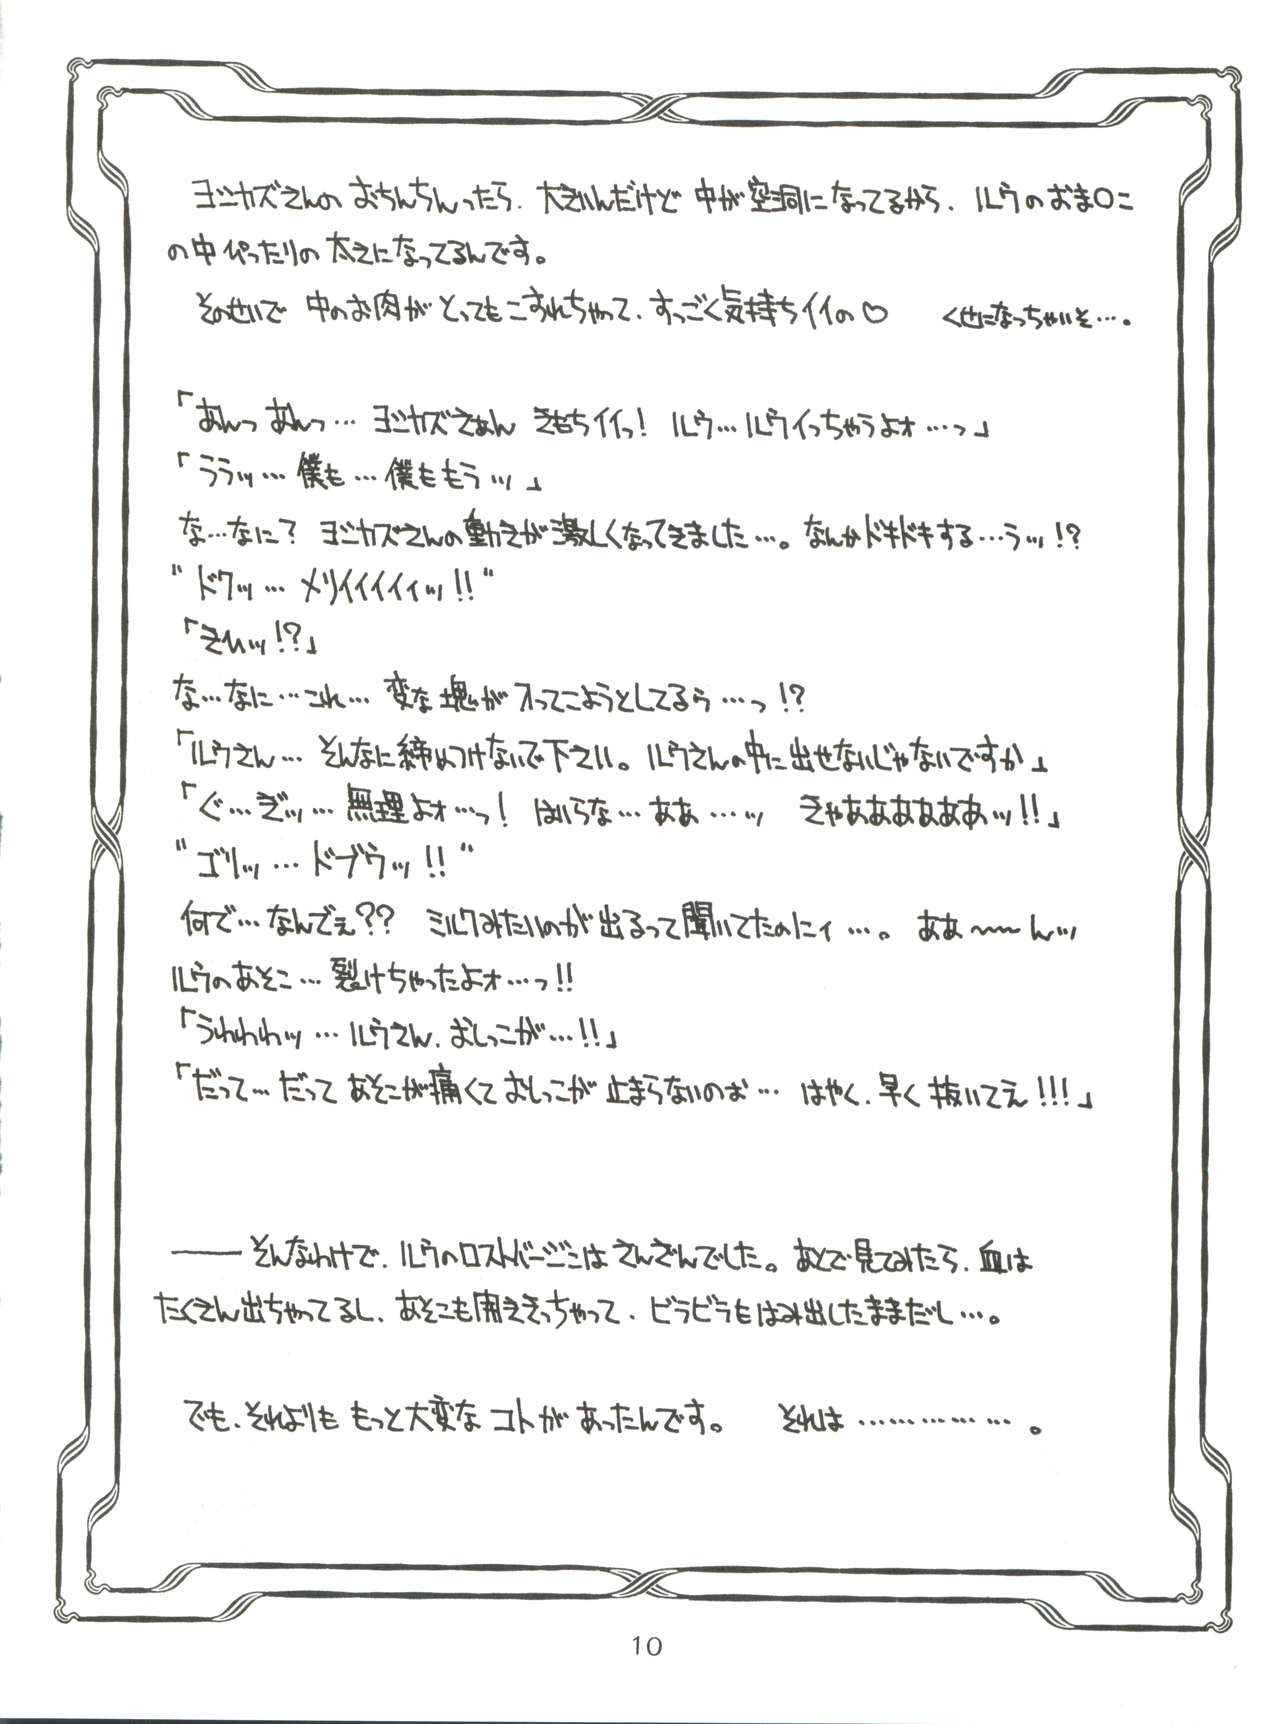 ヨシカズさんの おちんちんったら、大きいんだけど 中が空洞になってるから、ルウのおま○こ
の中ぴったりの 太さになってるんです。
そのせいで 中のお肉が とってもこすれちゃって、すっごく気持ちイイの♡ くせになっちゃいそ…。
「あんっ あんっ… ヨシカズさぁん きもちイイっ! ルウ…ルウイっちゃうよォ…っ」
「ううッ… 僕も… 僕ももうッ」
な…なに? ヨシカズさんの動きが激しくなってきました…。なんかドキドキする…うッ!?
"ドクッ… メリイイイイィッ!!"
「きひッ!?」
な…なに…これ… 変な塊が 入ってこようとしてるぅ…っ!?
「ルウさん… そんなに締めつけないで下さい。ルウさんの中に出せないじゃないですか」
「ぐ…ぎッ… 無理よォ…っ! はいらな… ああ…ッ きゃあああああッ!!」
"ゴリッ… ドブウッ!!"
何で…なんでぇ?? ミルクみたいのが出るって聞いてたのにィ…。ああ〜〜んッ
ルウのあそこ… 裂けちゃったよォ…っ!!
「うわわわッ… ルウさん、おしっこが…!!」
「だって… だって あそこが痛くて おしっこが 止まらないのぉ… はやく、早く 抜いてえ!!!」
――そんなわけで、ルウのロストバージンはさんざんでした。あとで見てみたら、血は
たくさん出ちゃってるし、あそこも開ききっちゃって、ビラビラもはみ出したままだし…。
でも、それよりも もっと大変な コトが あったんです。 それは……………。
10